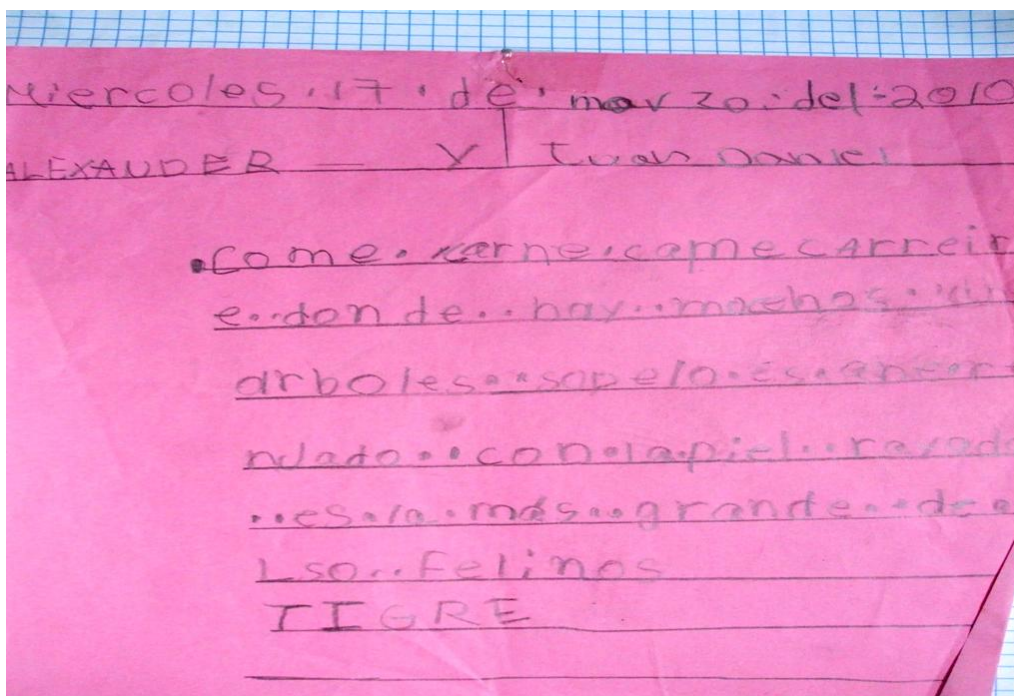 miercoles.17.de.marzo.del-2010
ALEXAUDER — Y Iuan Daniel
.come.carne.came cArreir
e..don de..hay..mochos
arboles..sopelo.es.
ndado..con.lapiel..rayad
..es.la.más..grande..de
Lso..Felinos
TIGRE